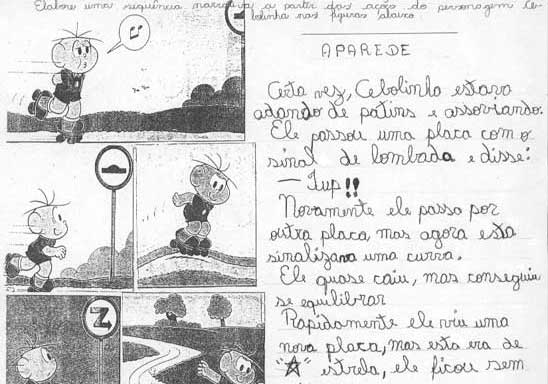 Elabore uma sequência narrativa a partir das ações do personagem Ce-
bolinha nas figuras abaixo
APAREDE
Certa vez, Cebolinha estava
adando de patins e assoviando.
Ele passou uma placa com o
sinal de lombada e disse:
— Iup!!
Novamente ele passo por
outra placa, mas agora esta
sinalizava uma curva.
Ele quase caiu, mas conseguiu
se equilibrar
Rapidamente ele viu uma
nova placa, mas esta era de
"☆" estrela, ele ficou sem